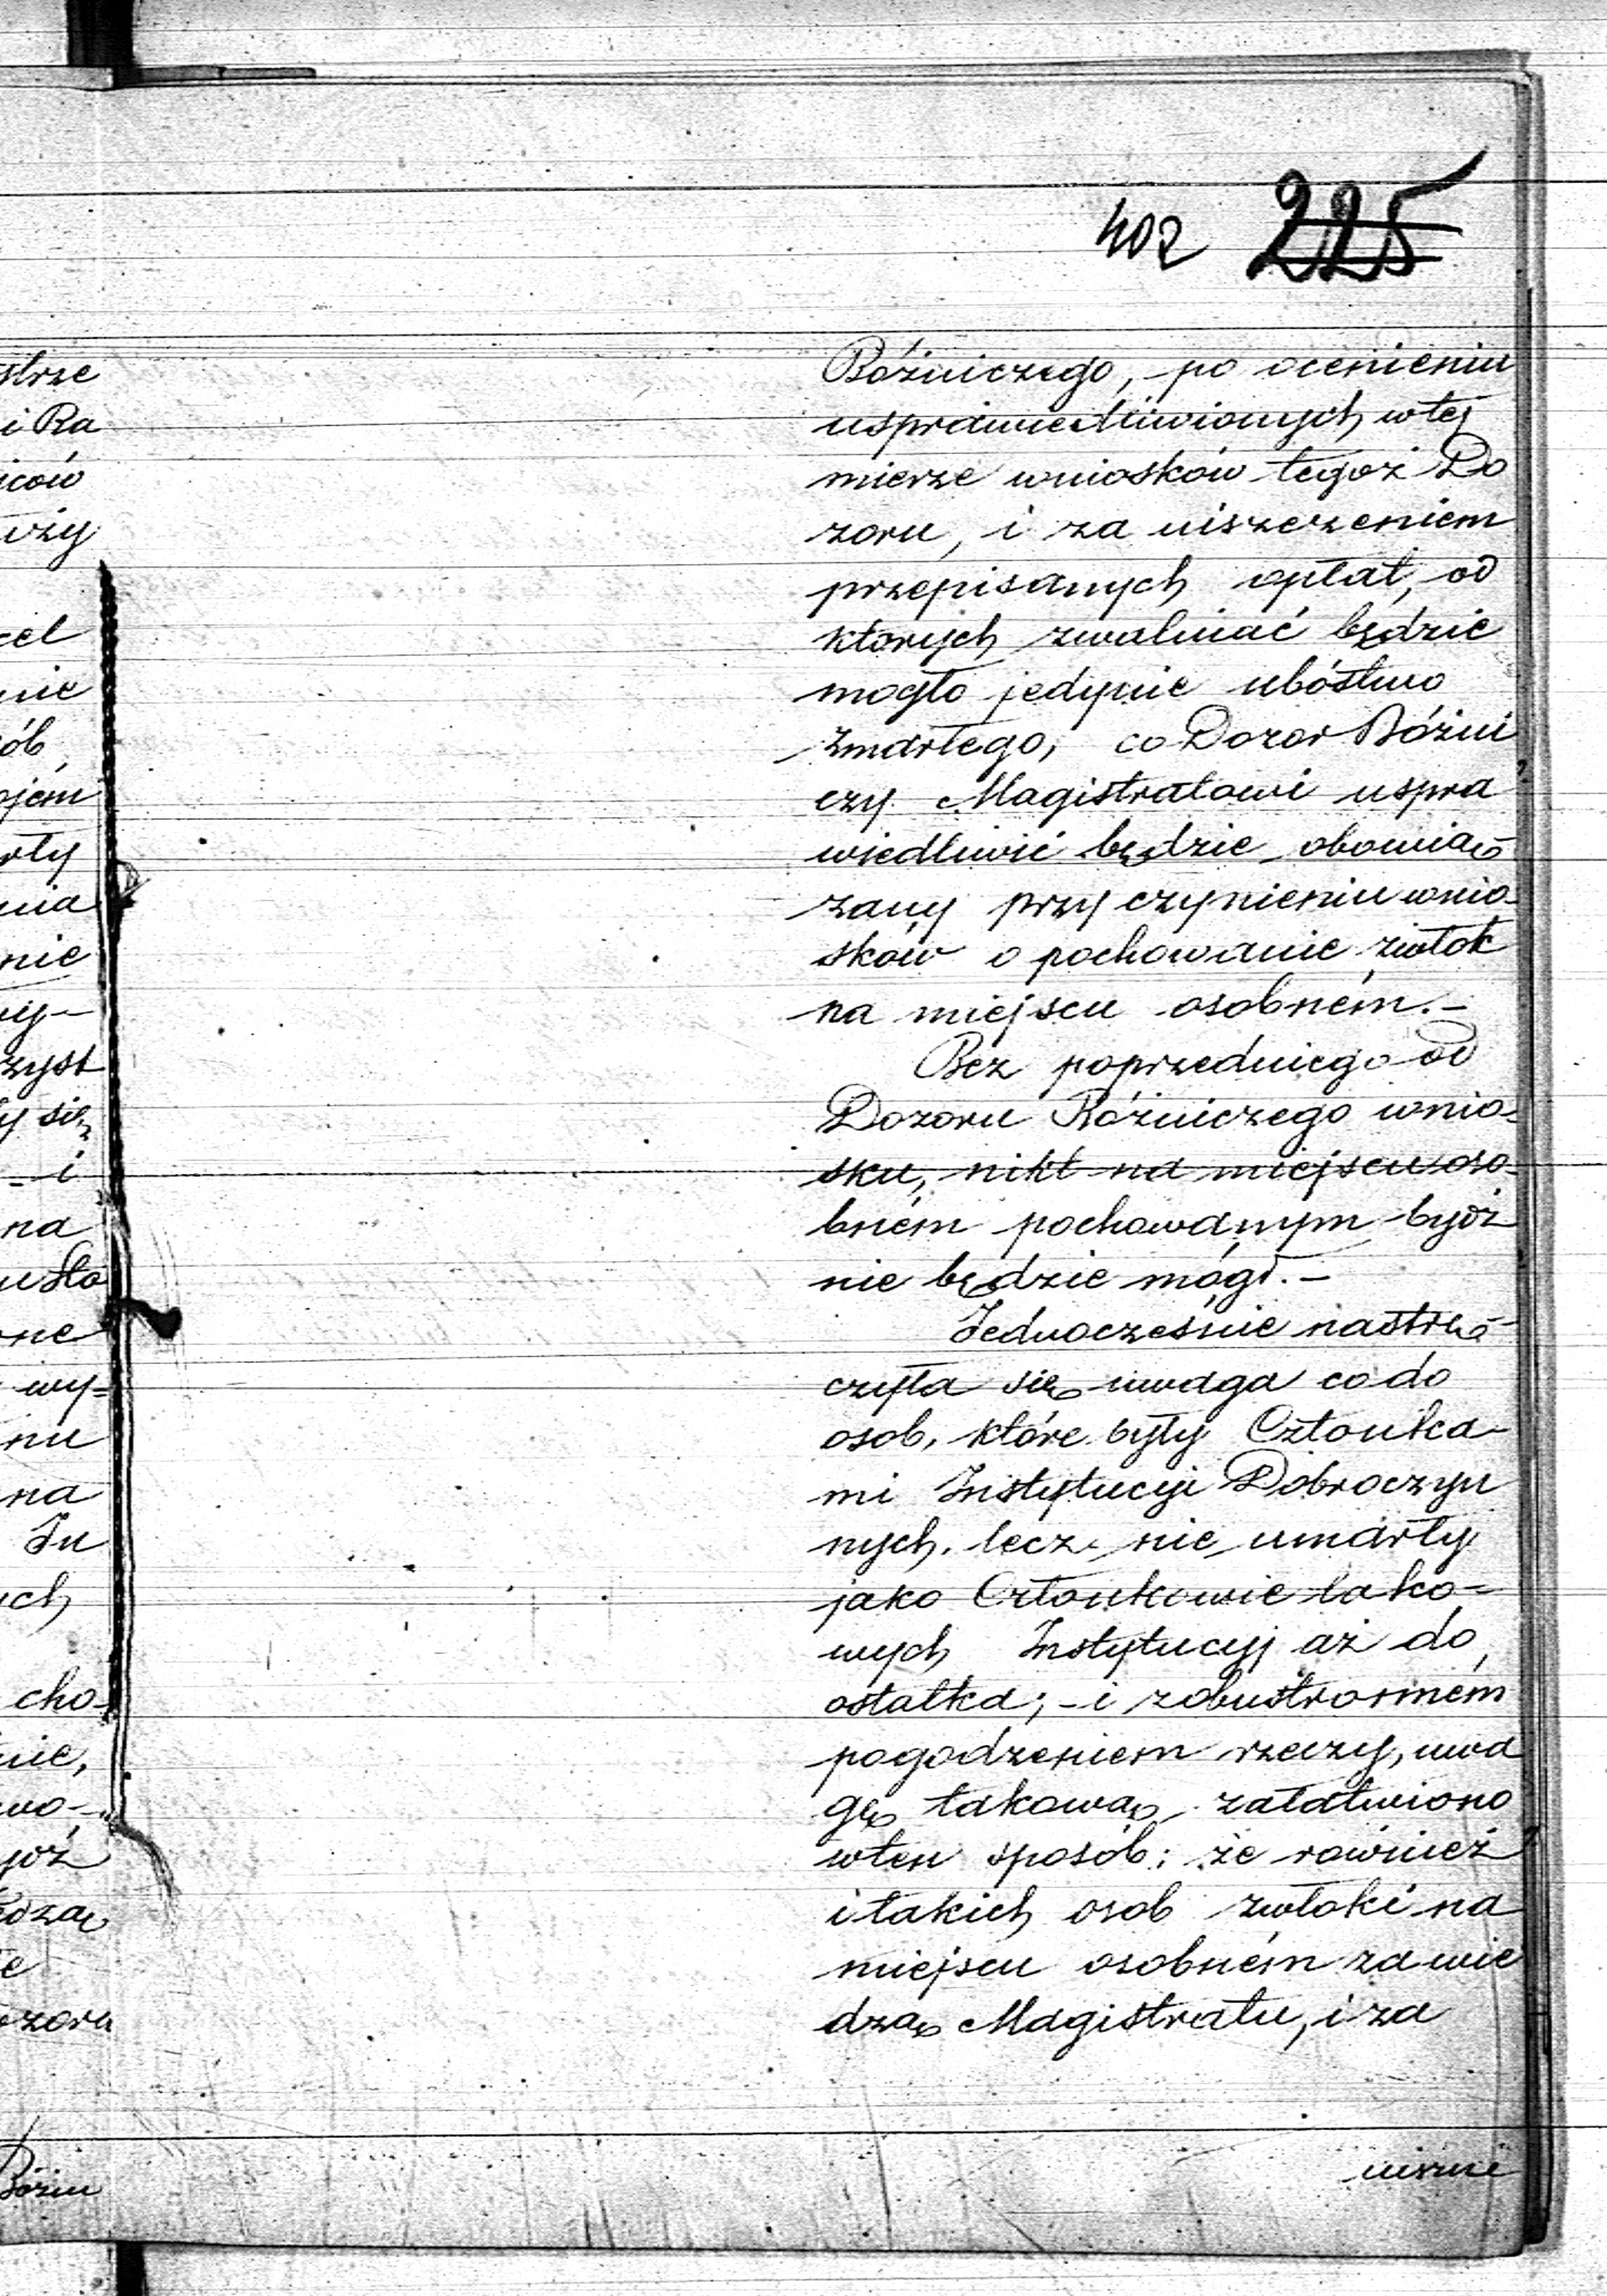 402 225
Bóżniczego, po ocenieniu
usprawiedliwionych w tej
mierze wniosków tegoż Do
zoru, i za uiszczeniem
przepisanych opłat, od
których zwalniać będzie
mogło jedynie ubóstwo
zmarłego, co Dozor Bóżni
czy Magistratowi uspra
wiedliwić będzie obowią-
zany przy czynieniu wnio-
sków o pochowanie zwłok
na miejscu osobném.-
Bez poprzedniego od
Dozoru Bóżniczego wnio-
sku, nikt na miejscu oso-
bném pochowanym bydź
nie będzie mógł.-
Jednocześnie nastrę-
czyła się uwaga co do
osob, które były Członka-
mi Instytucyi Dobroczyn
nych, lecz nie umarły
jako Członkowie tako-
wych Instytucyj aż do
ostatka; - i z obustronném
pogodzeniem rzeczy, uwa
gę takową załatwiono
w ten sposób: że również
i takich osob zwłoki na
miejscu osobném za wie
dzą Magistratu, i za
uiszcze
strze
i Ra
ców
wży
cel
nie
ób
ojém
rły
nia
nie
zyst
y się
- i
na
usto
one
wy=
nu
na
In
ych
cho-
nie,
wo-
ydź
edzą
e
ozoru
Bóżn